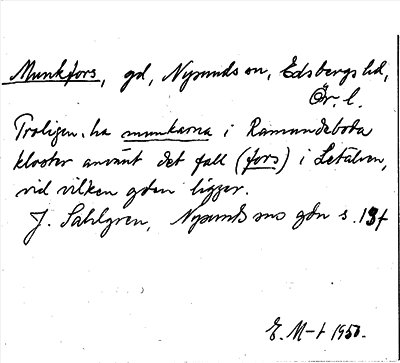 Munkfors, gd, Nysunds sn, Edsbergs hd,
Ör. l.
Troligen ha munkarna i Ramundeboda
kloster använt det fall (fors) i Letälven,
vid vilken gden ligger.
J. Sahlgren, Nysunds sns gdn s. 13f
E. M-t 1950.